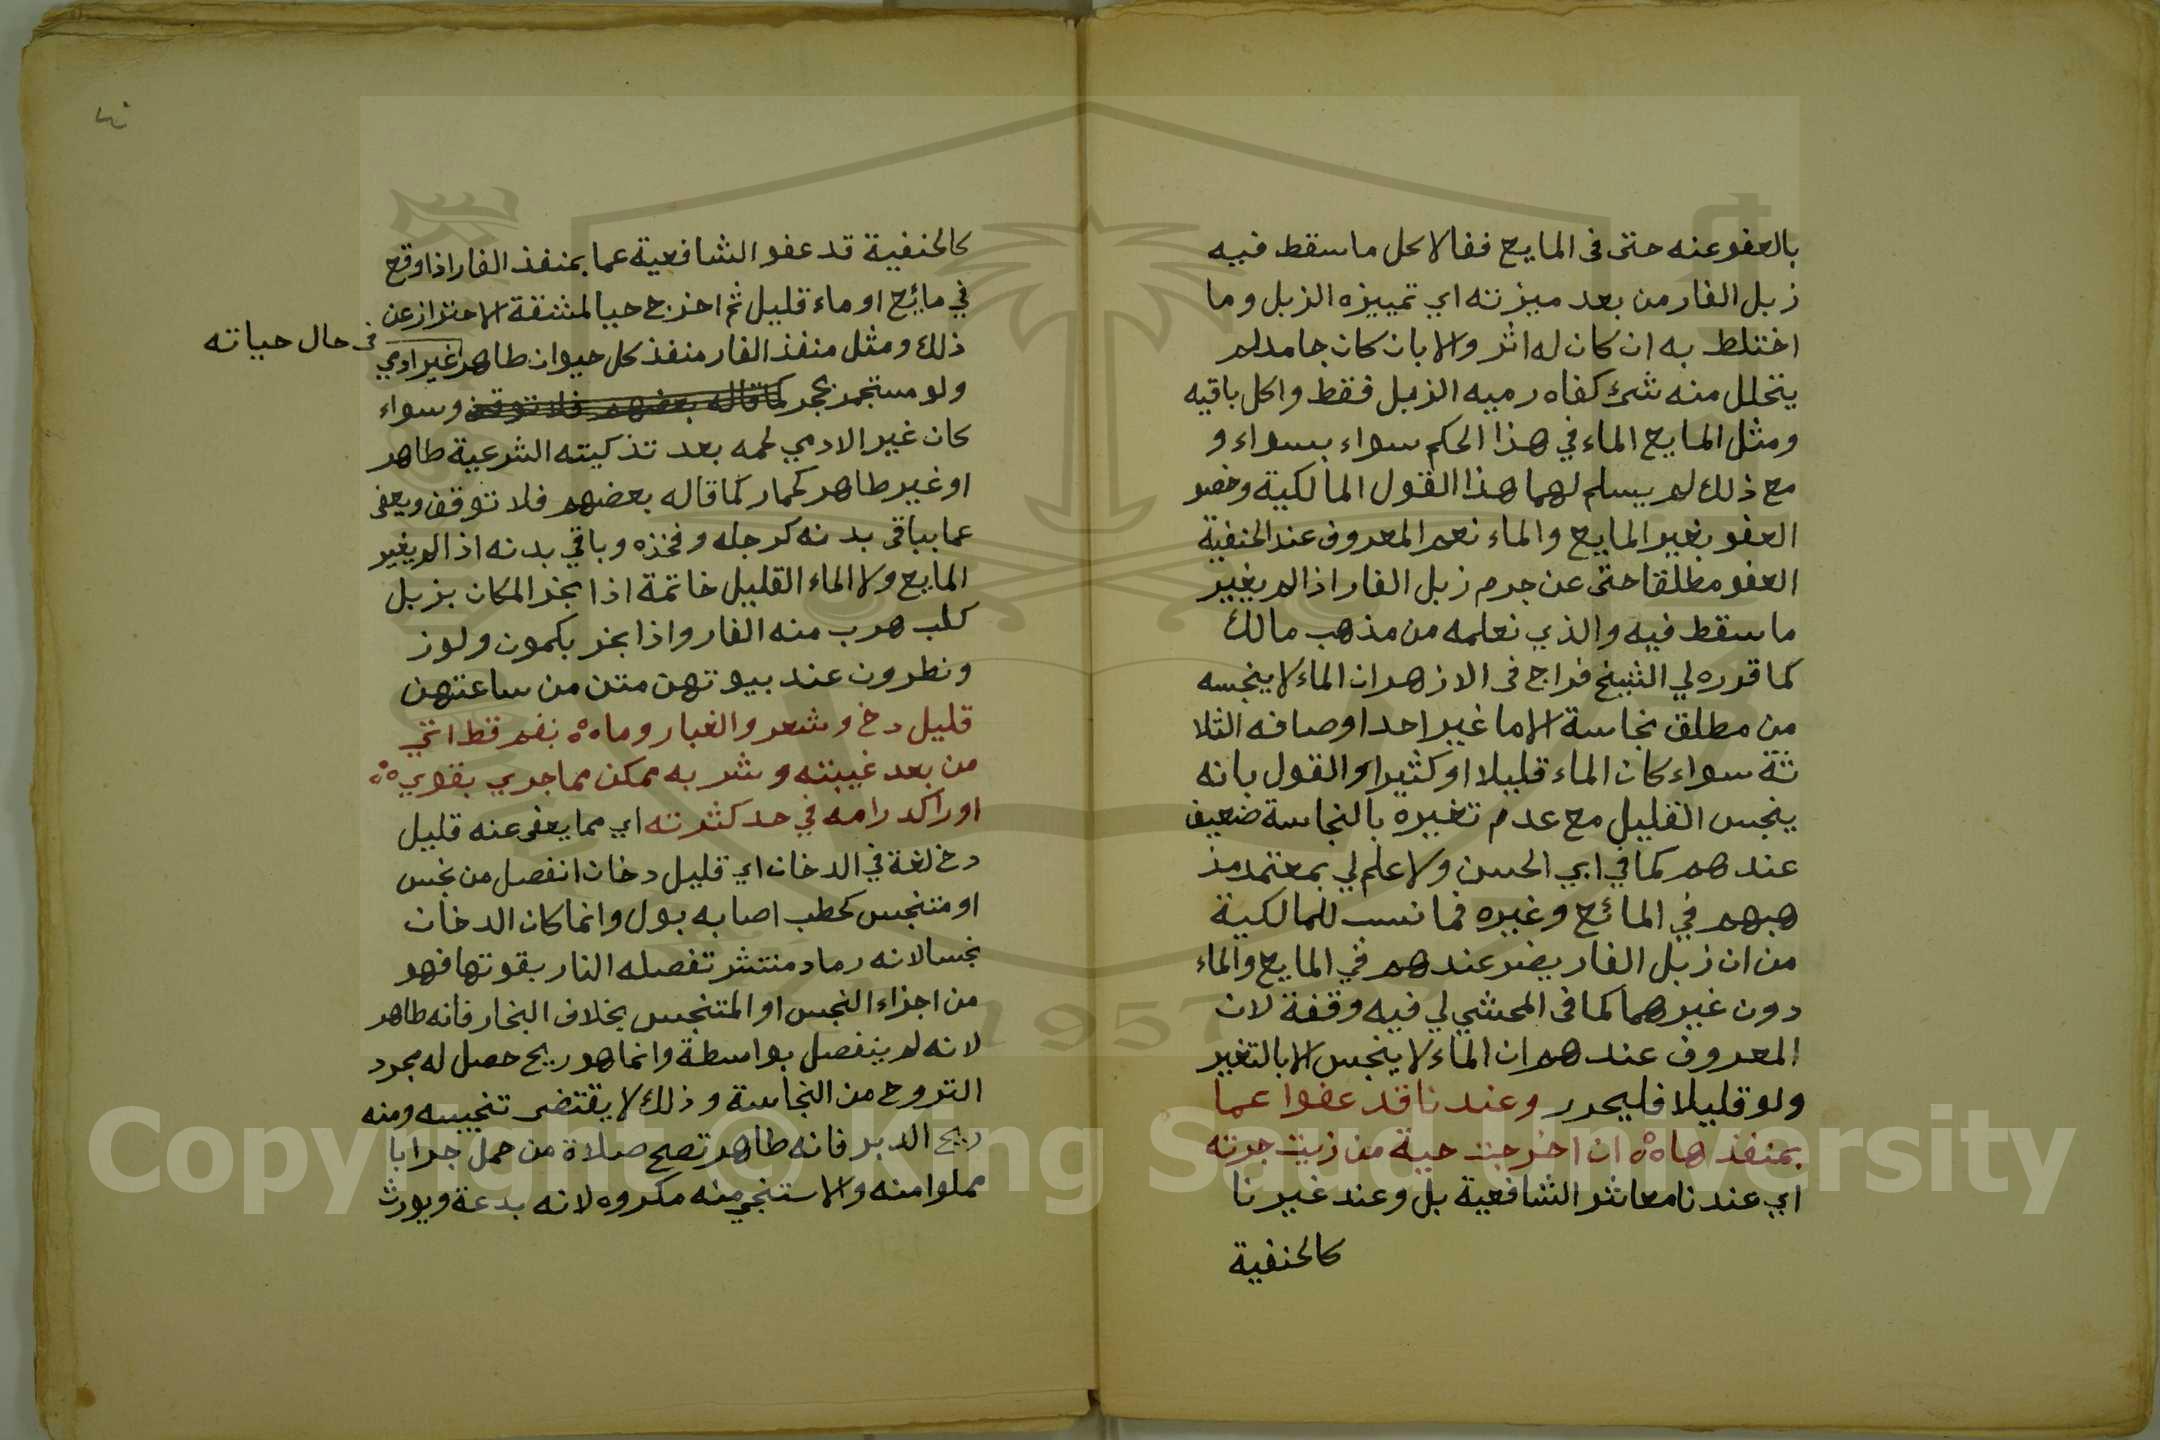 بالعفو عنه حتى فى المايع فقالا يحل ما سقط فيه
زبل الفار من بعد ميزته اي تمييزه الزبل وما
اختلط به ان كان له اثر والا بان كان جامد لم
يتحلل منه شئ كفاه رميه الزبل فقط واكل باقيه
ومثل المايع الماء في هذا الحكم سواء بسواء و
مع ذلك لم يسلم لهما هذا القول المالكية وخصو
العفو بغير المايع والماء نعم المعروف عند الحنفية
العفو مطلقا حتى عن جرم زبل الفار اذا لم يغير
ما سقط فيه والذي نعلمه من مذهب مالك
كما قرره لي الشيخ فراج فى الازهر ان الماء لا ينجسه
من مطلق نجاسة الا ما غير احد اوصافه الثلا
ثة سواء كان الماء قليلا او كثيرا والقول بانه
ينجس القليل مع عدم تغيره بالنجاسة ضعيف
عندهم كما في ابي الحسن ولا علم لي بمعتمد مذ
هبهم في المائع وغيره فما نسب للمالكية
من ان زبل الفار يضر عندهم في المايع والماء
دون غيرهما كما فى المحشي لي فيه وقفة لان
المعروف عندهم ان الماء لا ينجس الا بالتغير
ولو قليلا فليحرر وعندنا قد عفوا عما
بمنفذها ٥٥ ان اخرجت حية من زيت جرته
اي عندنا معاشر الشافعية بل وعند غيرنا
كالحنفية
كالحنفية قد عفو الشافعية عما بمنفذ الفار اذا وقع
في مايع او ماء قليل ثم اخرج حيا لمشقة الاحتراز عن
ذلك ومثل منفذ الفار منفذ كل حيوان طاهر غير ادمي
فى حال حياته
ولو مستجمر بحجر كما قاله بعضهم فلا توقف وسواء
كان غير الادمي لحمه بعد تذكيته الشرعية طاهر
او غير طاهر كحمار كما قاله بعضهم فلا توقف ويعفى
عما بباقى بدنه كرجله وفخذه وباقي بدنه اذا لم يغير
المايع ولا الماء القليل خاتمة اذا بخر المكان بزبل
كلب هرب منه الفار واذا بخر بكمون ولوز
ونطرون عند بيوتهن متن من ساعتهن
قليل دخ وشعر والغبار وما ٥٥ بفم قط اتي
من بعد غيبته وشربه ممكن مما جري بقوي ٥٥
او راكد رامه في حد كثرته اي مما يعفى عنه قليل
دخ لغة في الدخان اي قليل دخان انفصل من نجس
او متنجس كحطب اصابه بول وانما كان الدخان
نجسا لانه رماد منتشر تفصله النار بقوتها فهو
من اجزاء النجس او المتنجس بخلاف البخار فانه طاهر
لانه لم ينفصل بواسطة وانما هو ريح حصل له مجرد
التروح من النجاسة وذلك لا يقتضى تنجيسه ومنه
ريح الدبر فانه طاهر تصح صلاة من حمل جرابا
مملوا منه والاستنجي منه مكروه لانه بدعة ويورث
Copyright © King Saud University
1957